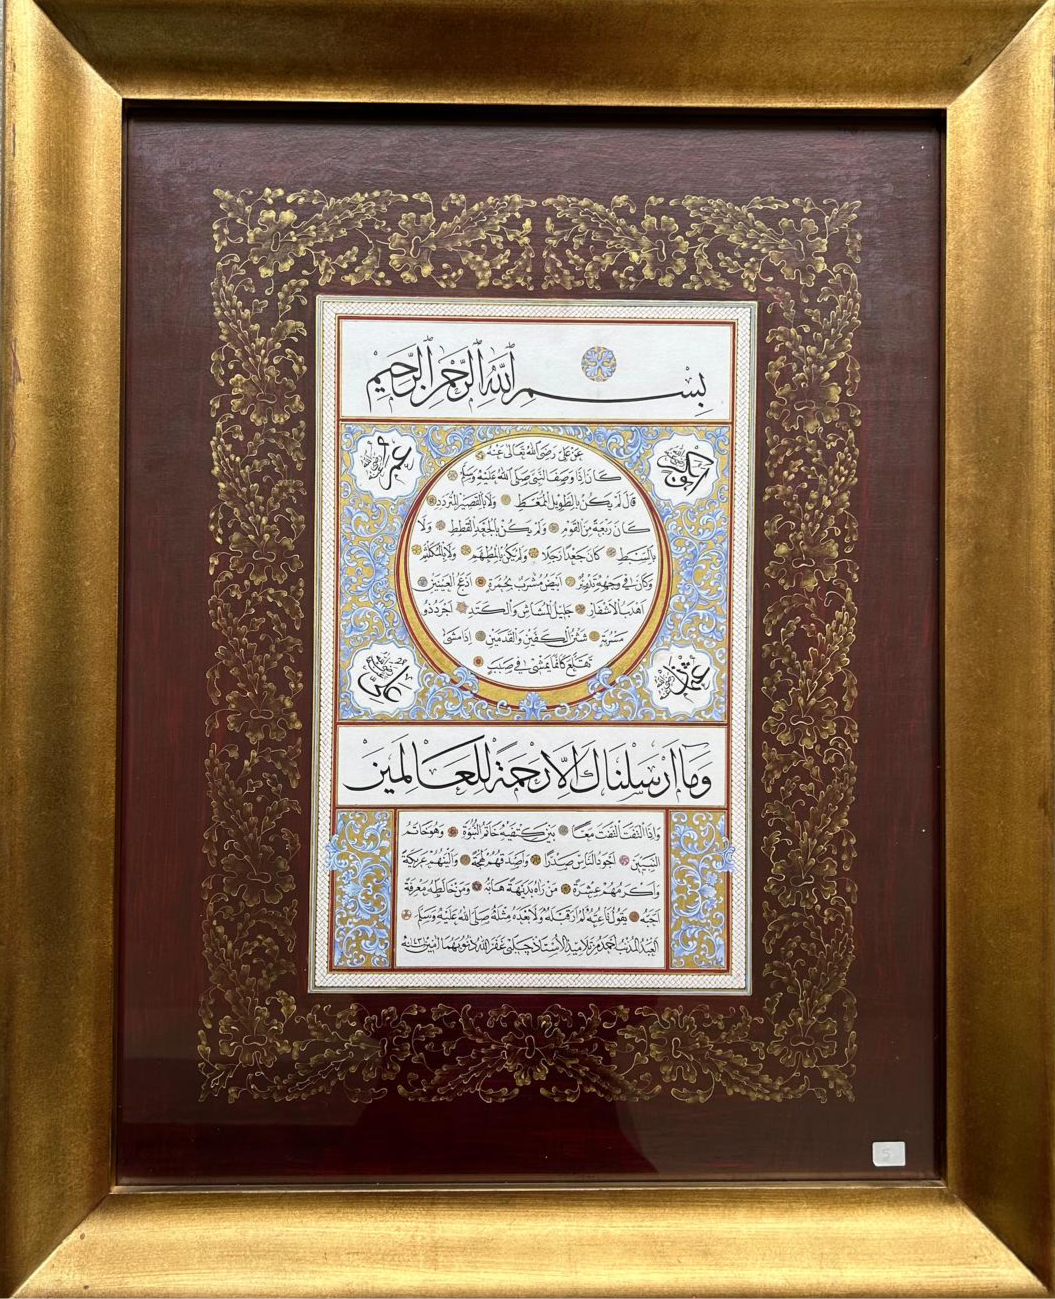 بِسْمِ اللَّهِ الرَّحْمَنِ الرَّحِيمِ
عَنْ عَلِيٍّ رَضِيَ اللهُ تَعَالَى عَنْهُ
عمر
أبو بكر
كَانَ إِذَا وَصَفَ النَّبِيَّ صَلَّى اللهُ عَلَيْهِ وَسَلَّمَ
قَالَ لَمْ يَكُنْ بِالطَّوِيلِ الْمُمَغَّطِ وَلَا بِالْقَصِيرِ الْمُتَرَدِّدِ
كَانَ رَبْعَةً مِنَ الْقَوْمِ وَلَمْ يَكُنْ بِالْجَعْدِ الْقَطَطِ وَلَا
بِالسَّبِطِ كَانَ جَعْدًا رَجِلًا وَلَمْ يَكُنْ بِالْمُطَهَّمِ وَلَا بِالْمُكَلْثَمِ
وَكَانَ فِي وَجْهِهِ تَدْوِيرٌ أَبْيَضُ مُشْرَبٌ بِحُمْرَةٍ أَدْعَجُ الْعَيْنَيْنِ
أَهْدَبُ الْأَشْفَارِ جَلِيلُ الْمُشَاشِ وَالْكَتَدِ أَجْرَدُ ذُو
مَسْرُبَةٍ شَثْنُ الْكَفَّيْنِ وَالْقَدَمَيْنِ إِذَا مَشَى
تَقَلَّعَ كَأَنَّمَا يَمْشِي فِي صَبَبٍ
علي
عثمان
وَمَا أَرْسَلْنَاكَ إِلَّا رَحْمَةً لِلْعَالَمِينَ
وَإِذَا الْتَفَتَ الْتَفَتَ مَعًا بَيْنَ كَتِفَيْهِ خَاتَمُ النُّبُوَّةِ وَهُوَ خَاتَمُ
النَّبِيِّينَ أَجْوَدُ النَّاسِ صَدْرًا وَأَصْدَقُهُمْ لَهْجَةً وَأَلْيَنُهُمْ عَرِيكَةً
وَأَكْرَمُهُمْ عِشْرَةً مَنْ رَآهُ بَدِيهَةً هَابَهُ وَمَنْ خَالَطَهُ مَعْرِفَةً
أَحَبَّهُ يَقُولُ نَاعِتُهُ لَمْ أَرَ قَبْلَهُ وَلَا بَعْدَهُ مِثْلَهُ صَلَّى اللهُ عَلَيْهِ وَسَلَّمَ
أحمد من تلاميذ الأستاذ چلبي غفر الله ذنوبهما آمين